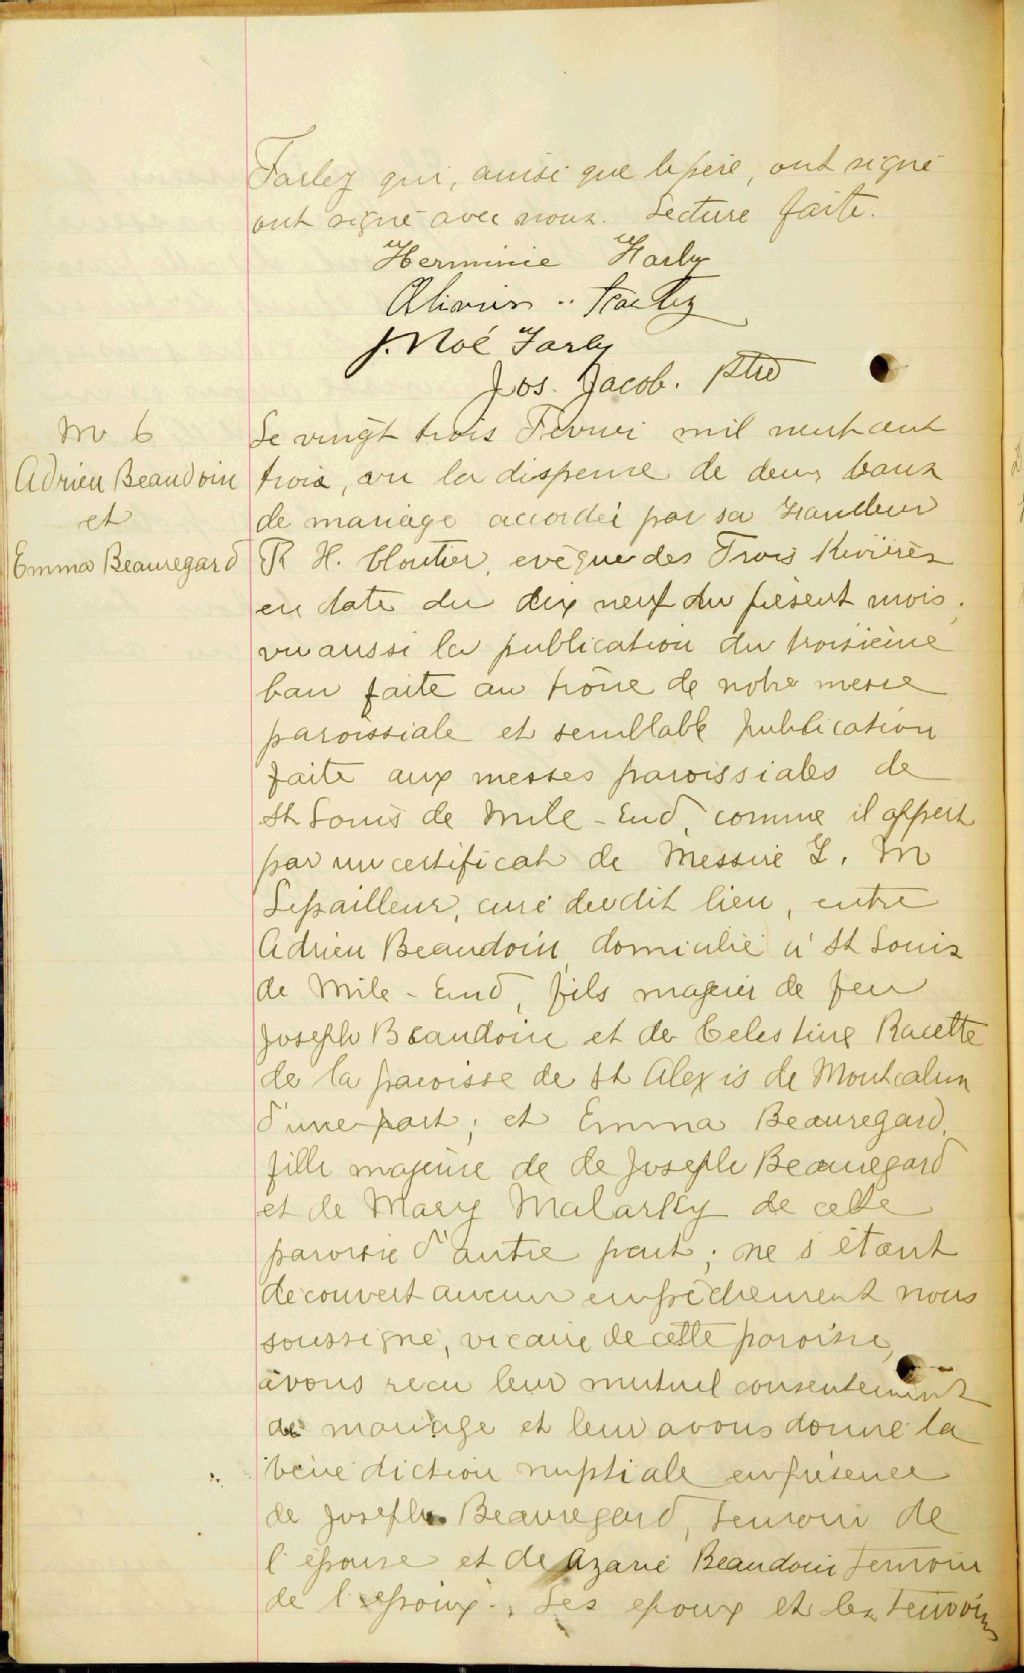 Farley qui, ainsi que le père, ont signé
ont signé avec nous. Lecture faite.
Herminie Farly
Olivier Farley
J. Noé Farly
Jos. Jacob. Ptre
M 6
Adrien Beaudoin
et
Emma Beauregard
Le vingt trois Fevrier mil neuf cent
trois, vu la dispense de deux bans
de mariage accordée par sa Grandeur
F. X. Cloutier, evêque des Trois Rivières
en date du dix neuf du présent mois,
vu aussi la publication du troisième
ban faite au prône de notre messe
paroissiale et semblable publication
faite aux messes paroissiales de
St Louis de Mile-End, comme il appert
par un certificat de Messire G. M
Lepailleur, curé du dit lieu, entre
Adrien Beaudoin, domicilié à St Louis
de Mile-End, fils majeur de feu
Joseph Beaudoin et de Celestine Racette
de la paroisse de St Alexis de Montcalm
d'une part; et Emma Beauregard,
fille majeure de de Joseph Beauregard
et de Mary Malarky de cette
paroisse d'autre part; ne s'étant
découvert aucun empêchement nous
soussigné, vicaire de cette paroisse,
avons reçu leur mutuel consentement
de mariage et leur avons donné la
bénédiction nuptiale en présence
de Joseph Beauregard, temoin de
l'épouse et de Azarie Beaudoin temoin
de l'époux. Les epoux et les temoins